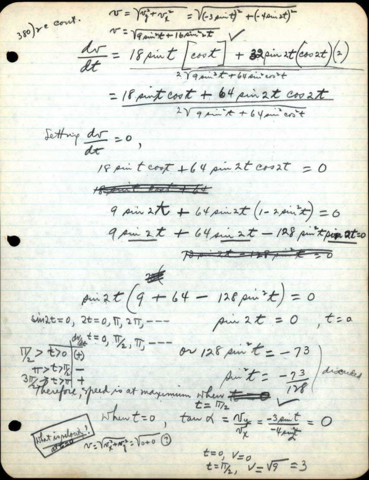 380) re cont.
v = √(v_y² + v_x²) = √((-3 sin t)² + (-4 sin 2t)²)
v = √(9 sin²t + 16 sin²2t)
dv/dt = 18 sin t [cos t] + 32 sin 2t (cos 2t)(2) / 2√(9 sin²t + 64 sin²cos²t)
= 18 sin t cos t + 64 sin 2t cos 2t / 2√(9 sin²t + 64 sin²cos²t)
Setting dv/dt = 0,
18 sin t cos t + 64 sin 2t cos 2t = 0
9 sin 2t + 64 sin 2t (1 - 2 sin²t) = 0
9 sin 2t + 64 sin 2t - 128 sin²t sin 2t = 0
sin 2t (9 + 64 - 128 sin²t) = 0
sin 2t = 0, 2t = 0, π, 2π, ---
sin 2t = 0, t = 0
t = 0, π/2, π, ---
dv/dt
π/2 > t > 0 (+)
π > t > π/2 -
3π/2 > t > π +
or 128 sin²t = -73
sin²t = -73/128
discarded
Therefore, speed is at maximum when
t = π/2
when t = 0, tan α = v_y/v_x = -3 sin t / -4 sin 2t = 0
What is velocity?
v = √(v_x² + v_y²) = √(0+0) (?)
t = 0, v = 0
t = π/2, v = √9 = 3